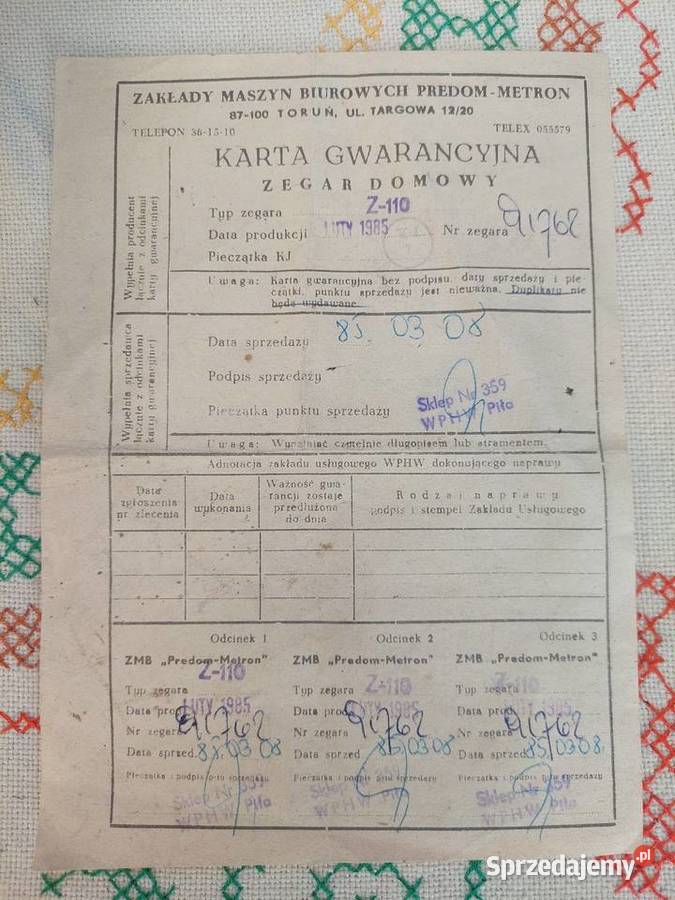 ZAKŁADY MASZYN BIUROWYCH PREDOM-METRON
87-100 TORUŃ, UL. TARGOWA 12/20
TELEFON 36-15-10 TELEX 055579
KARTA GWARANCYJNA
ZEGAR DOMOWY
Wypełnia producent łącznie z odcinkami karty gwarancyjnej
Typ zegara Z-110
Data produkcji LUTY 1985 Nr zegara 91762
Pieczątka KJ
Uwaga: Karta gwarancyjna bez podpisu, daty sprzedaży i pie-
czątki, punktu sprzedaży jest nieważna. Duplikaty nie
będą wydawane.
Wypełnia sprzedawca łącznie z odcinkami karty gwarancyjnej
Data sprzedaży 85.03.08
Podpis sprzedaży
Pieczątka punktu sprzedaży Sklep Nr 359
WPHW Piła
Uwaga: Wypełniać czytelnie długopisem lub atramentem.
Adnotacja zakładu usługowego WPHW dokonującego naprawy
Data zgłoszenia nr zlecenia
Data wykonania
Ważność gwa-
rancji zostaje
przedłużona
do dnia
Rodzaj naprawy
podpis i stempel Zakładu Usługowego
Odcinek 1
ZMB „Predom-Metron"
Z-110
Typ zegara
Data prod LUTY 1985
Nr zegara 91762
Data sprzed. 85.03.08
Pieczątka i podpis pktu sprzedaży
Sklep Nr 359
WPHW Piła
Odcinek 2
ZMB „Predom-Metron"
Typ zegara Z-110
Data prod LUTY 1985
Nr zegara 91762
Data sprzed 85.03.08
Pieczątka i podpis pktu sprzedaży
WPHW Piła
Odcinek 3
ZMB „Predom-Metron"
Typ zegara Z-110
Data prod 1985
Nr zegara 91762
Data sprzed. 85.03.08.
Pieczątka i podpis pktu sprzedaży
Sklep Nr 359
WPHW Piła
Sprzedajemy.pl